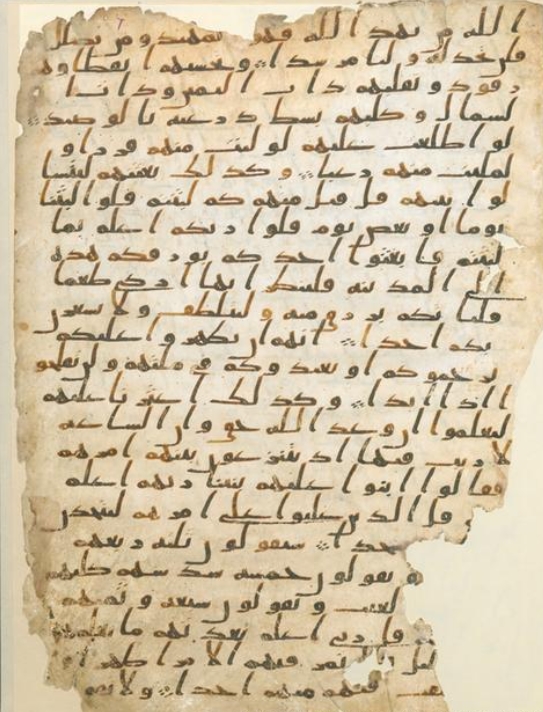 الله من يهد الله فهو المهتد ومن يضلل
فلن تجد له وليا مرشدا وتحسبهم ايقاظا وهم
رقود ونقلبهم ذات اليمين وذات ا
لشمال وكلبهم بسط ذرعيه بالوصيد
لو اطلعت عليهم لوليت منهم فررا و
لملئت منهم رعبا وكذلك بعثنهم ليتسا
لوا بينهم قل قئل منهم كم لبثتم قلوا لبثنا
يوما او بعض يوم قلوا ربكم اعلم بما
لبثتم فابعثوا احدكم بورقكم هذه
الى المدينة فلينظر ايها ازكى طعما
فلياتكم برزق منه وليتلطف ولا يشعرن
بكم احدا انهم ان يظهروا عليكم
يرجموكم او يعيدوكم في ملتهم ولن تفلحو
ا اذا ابدا وكذلك اعثرنا عليهم
ليعلموا ان وعد الله حق وان الساعة
لا ريب فيها اذ يتنزعون بينهم امرهم
فقالوا ابنوا عليهم بنينا ربهم اعلم
قل الذين غلبوا على امرهم لنتخذن
جدا سيقولون ثلثة ربعهم
م ويقولون خمسة سدسهم كلبهم
لغيب ويقولون سبعة وثمنهم
قل ربي اعلم بعدتهم ما يعلمهم
ليل تمر فيهم الا مرا ظهرا و
فيهم منهم احدا ولا تقو